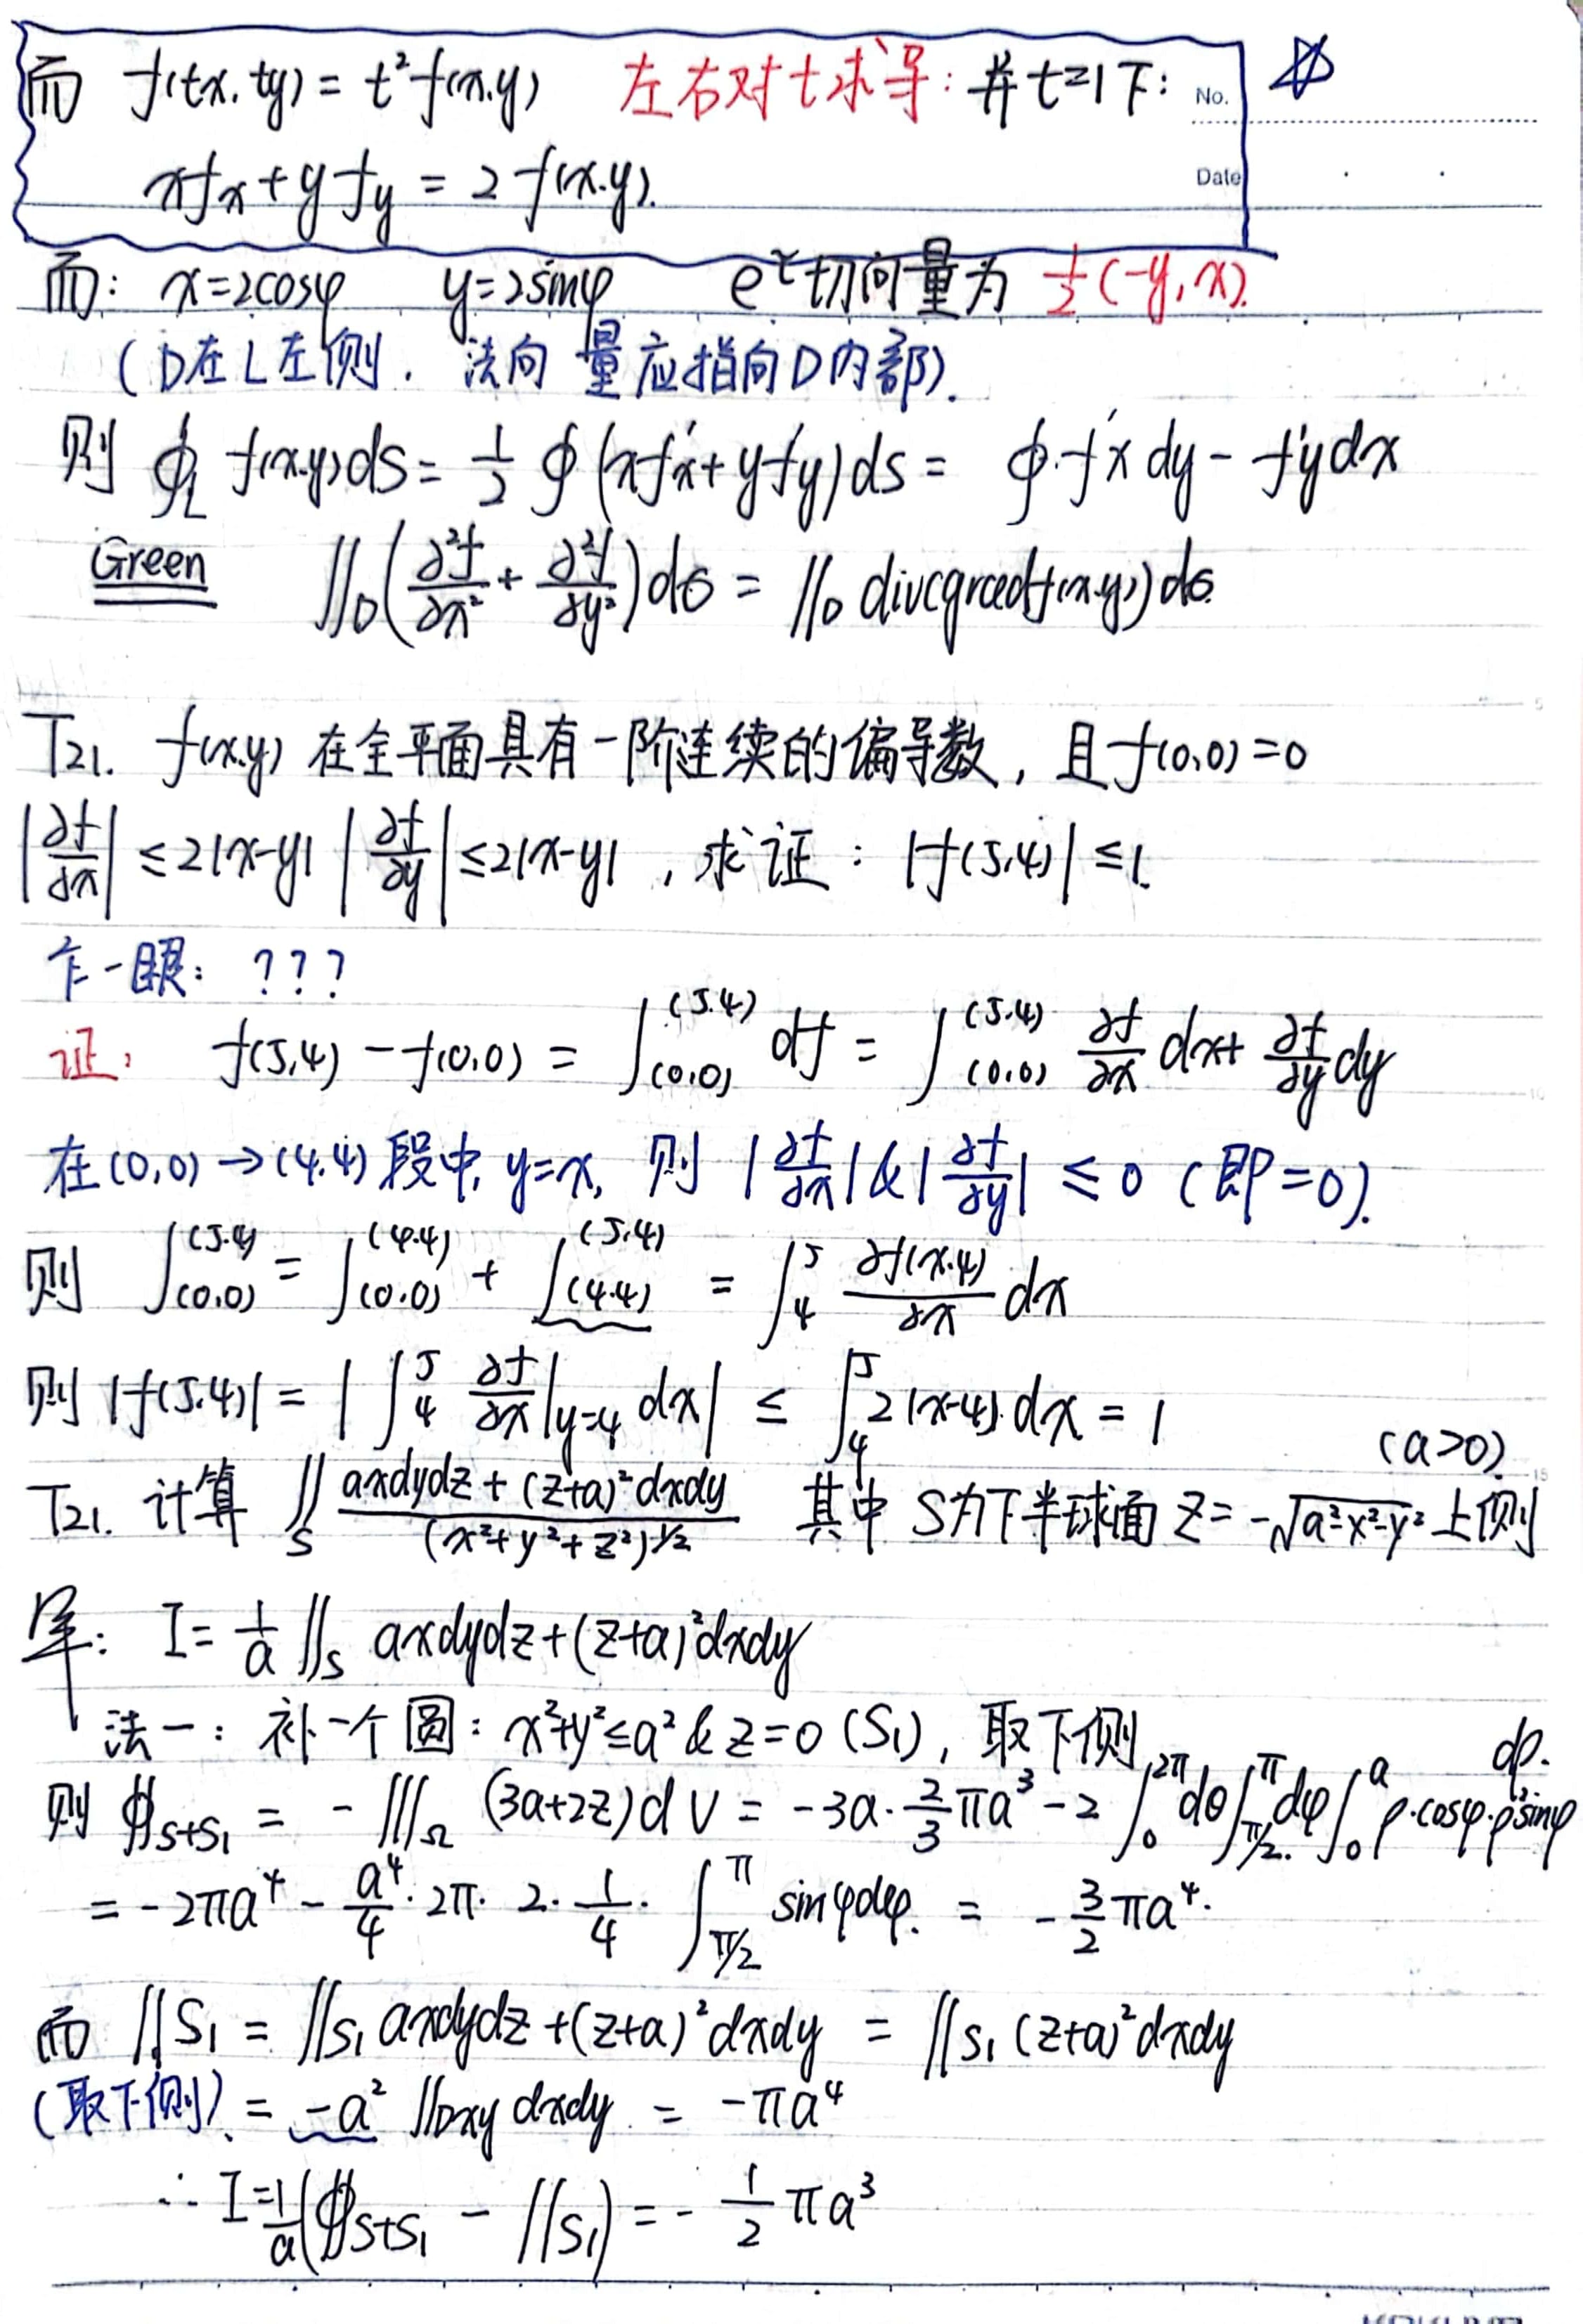 而 f(tx.ty) = t²f(x.y) 左右对t求导: 并t=1下: No. ☆
xfx + yfy = 2f(x.y). Date
而: x=2cosφ y=2sinφ e^τ切向量为 1/2(-y,x).
(D在L左侧. 法向量应指向D内部).
则 ∮_L f(x.y)ds = 1/2 ∮(xf'x + yf'y)ds = ∮f'x dy - f'y dx
Green ∬_D(∂²f/∂x² + ∂²f/∂y²)dσ = ∬_D div(gradf(x,y))dσ.
T21. f(x.y) 在全平面具有一阶连续的偏导数, 且f(0,0)=0
|∂f/∂x| ≤2|x-y| |∂f/∂y| ≤2|x-y| , 求证: |f(5,4)| ≤1.
乍一眼: ???
证: f(5,4) - f(0,0) = ∫_(0,0)^(5.4) df = ∫_(0,0)^(5,4) ∂f/∂x dx + ∂f/∂y dy
在(0,0)→(4.4)段中, y=x, 则 |∂f/∂x| & |∂f/∂y| ≤ 0 (即=0).
则 ∫_(0,0)^(5.4) = ∫_(0.0)^(4.4) + ∫_(4.4)^(5,4) = ∫_4^5 ∂f(x.4)/∂x dx
则 |f(5.4)| = | ∫_4^5 ∂f/∂x|_y=4 dx | ≤ ∫_4^5 2|x-4| dx = 1
(a>0)
T21. 计算 ∬_S (axdydz + (z+a)²dxdy)/(x²+y²+z²)^1/2 其中 S为下半球面 z=-√(a²-x²-y²) 上侧
解: I= 1/a ∬_S axdydz+(z+a)²dxdy
法一: 补一个圆: x²+y²≤a² & z=0 (S₁), 取下侧
则 ∯_S+S₁ = - ∭_Ω (3a+2z)dV = -3a·2/3πa³ - 2 ∫_0^2π dθ ∫_π/2^π dφ ∫_0^a ρ·cosφ·ρ²sinφ dρ.
= -2πa⁴ - a⁴/4·2π· 2·1/4· ∫_π/2^π sinφdφ. = -3/2πa⁴.
而 ∬S₁ = ∬_S₁ axdydz+(z+a)²dxdy = ∬_S₁ (z+a)²dxdy
(取下侧) = -a² ∬_Dxy dxdy = -πa⁴
∴ I = 1/a(∯_S+S₁ - ∬_S₁) = - 1/2 πa³